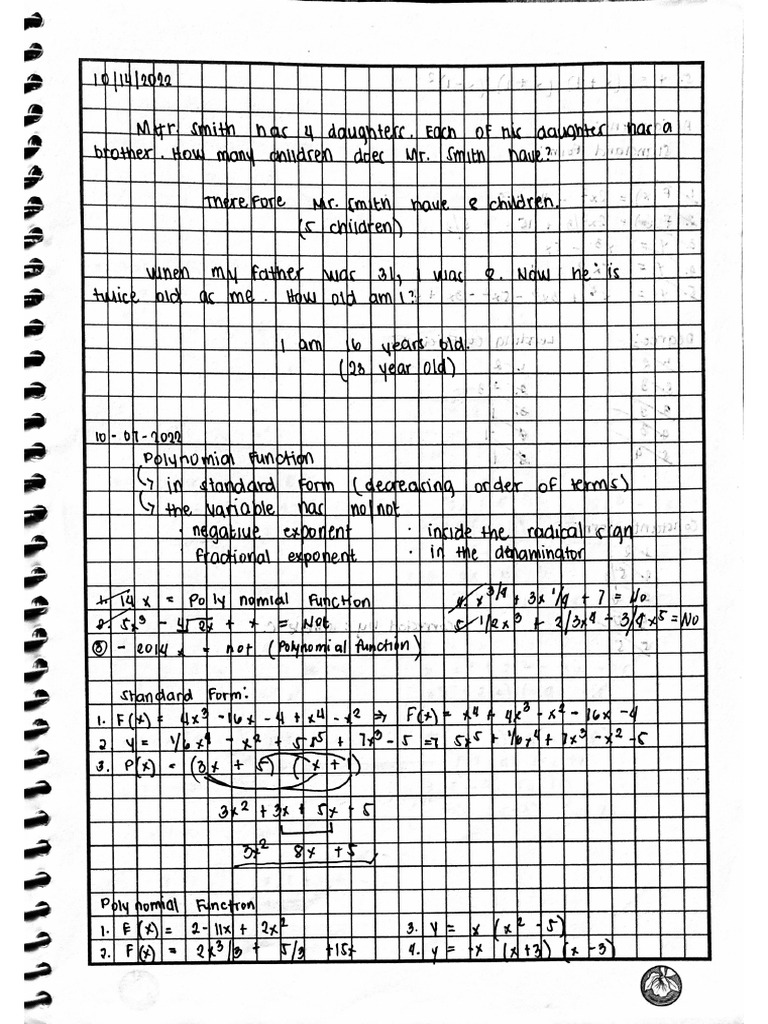 10/14/2022
Mr. Smith has 4 daughters. Each of his daughter has a
brother. How many children does Mr. Smith have?
Therefore Mr. Smith have 8 children.
(5 children)
When my father was 31, I was 8. Now he is
twice old as me. How old am I?
I am 16 years old.
(23 year old)
10-07-2022
Polynomial Function
↳ in standard form (decreasing order of terms)
↳ the variable has no/not
· negative exponent · inside the radical sign
fractional exponent · in the denominator
1. 14x = Polynomial Function 4. x^3/4 + 3x^1/4 + 7 = No
2. 5x³ - 4√2x + x = Not 5. 1/2x³ + 2/3x⁴ - 3/4x⁵ = No
③ - 2014x = not (Polynomial function)
Standard Form:
1. F(x) = 4x³ - 16x - 4 + x⁴ - x² ⇒ F(x) = x⁴ + 4x³ - x² - 16x - 4
2. y = 1/6x⁴ - x² + 5x⁵ + 7x³ - 5 ⇒ 5x⁵ + 1/6x⁴ + 7x³ - x² - 5
3. P(x) = (3x + 5) (x + 1)
3x² + 3x + 5x + 5
3x² 8x + 5
Polynomial Function
1. F(x) = 2 - 11x + 2x² 3. y = x (x² - 5)
2. F(x) = 2x³/3 + 5/3 + 15x 4. y = -x (x+3) (x-3)